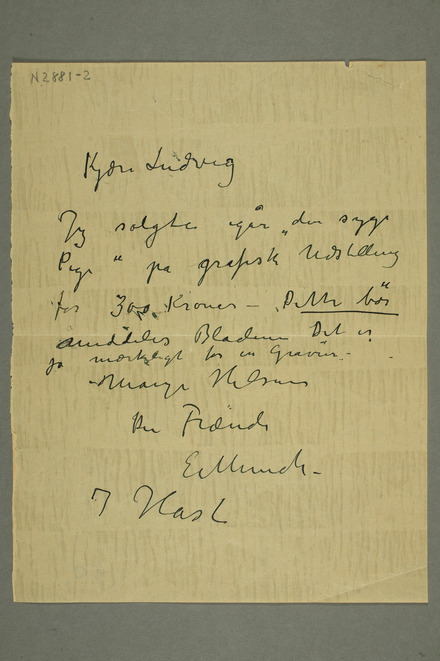 N 2881-2
Kjære Ludvig
Jeg solgte igår „den syge
Pige“ på grafisk Udstilling
for 300 Kroner – Dette bør
meddeles Bladene Det er
jo mærkeligt for en Gravür –
Mange Hilsener
Din Frænde
E Munch –
I Hast